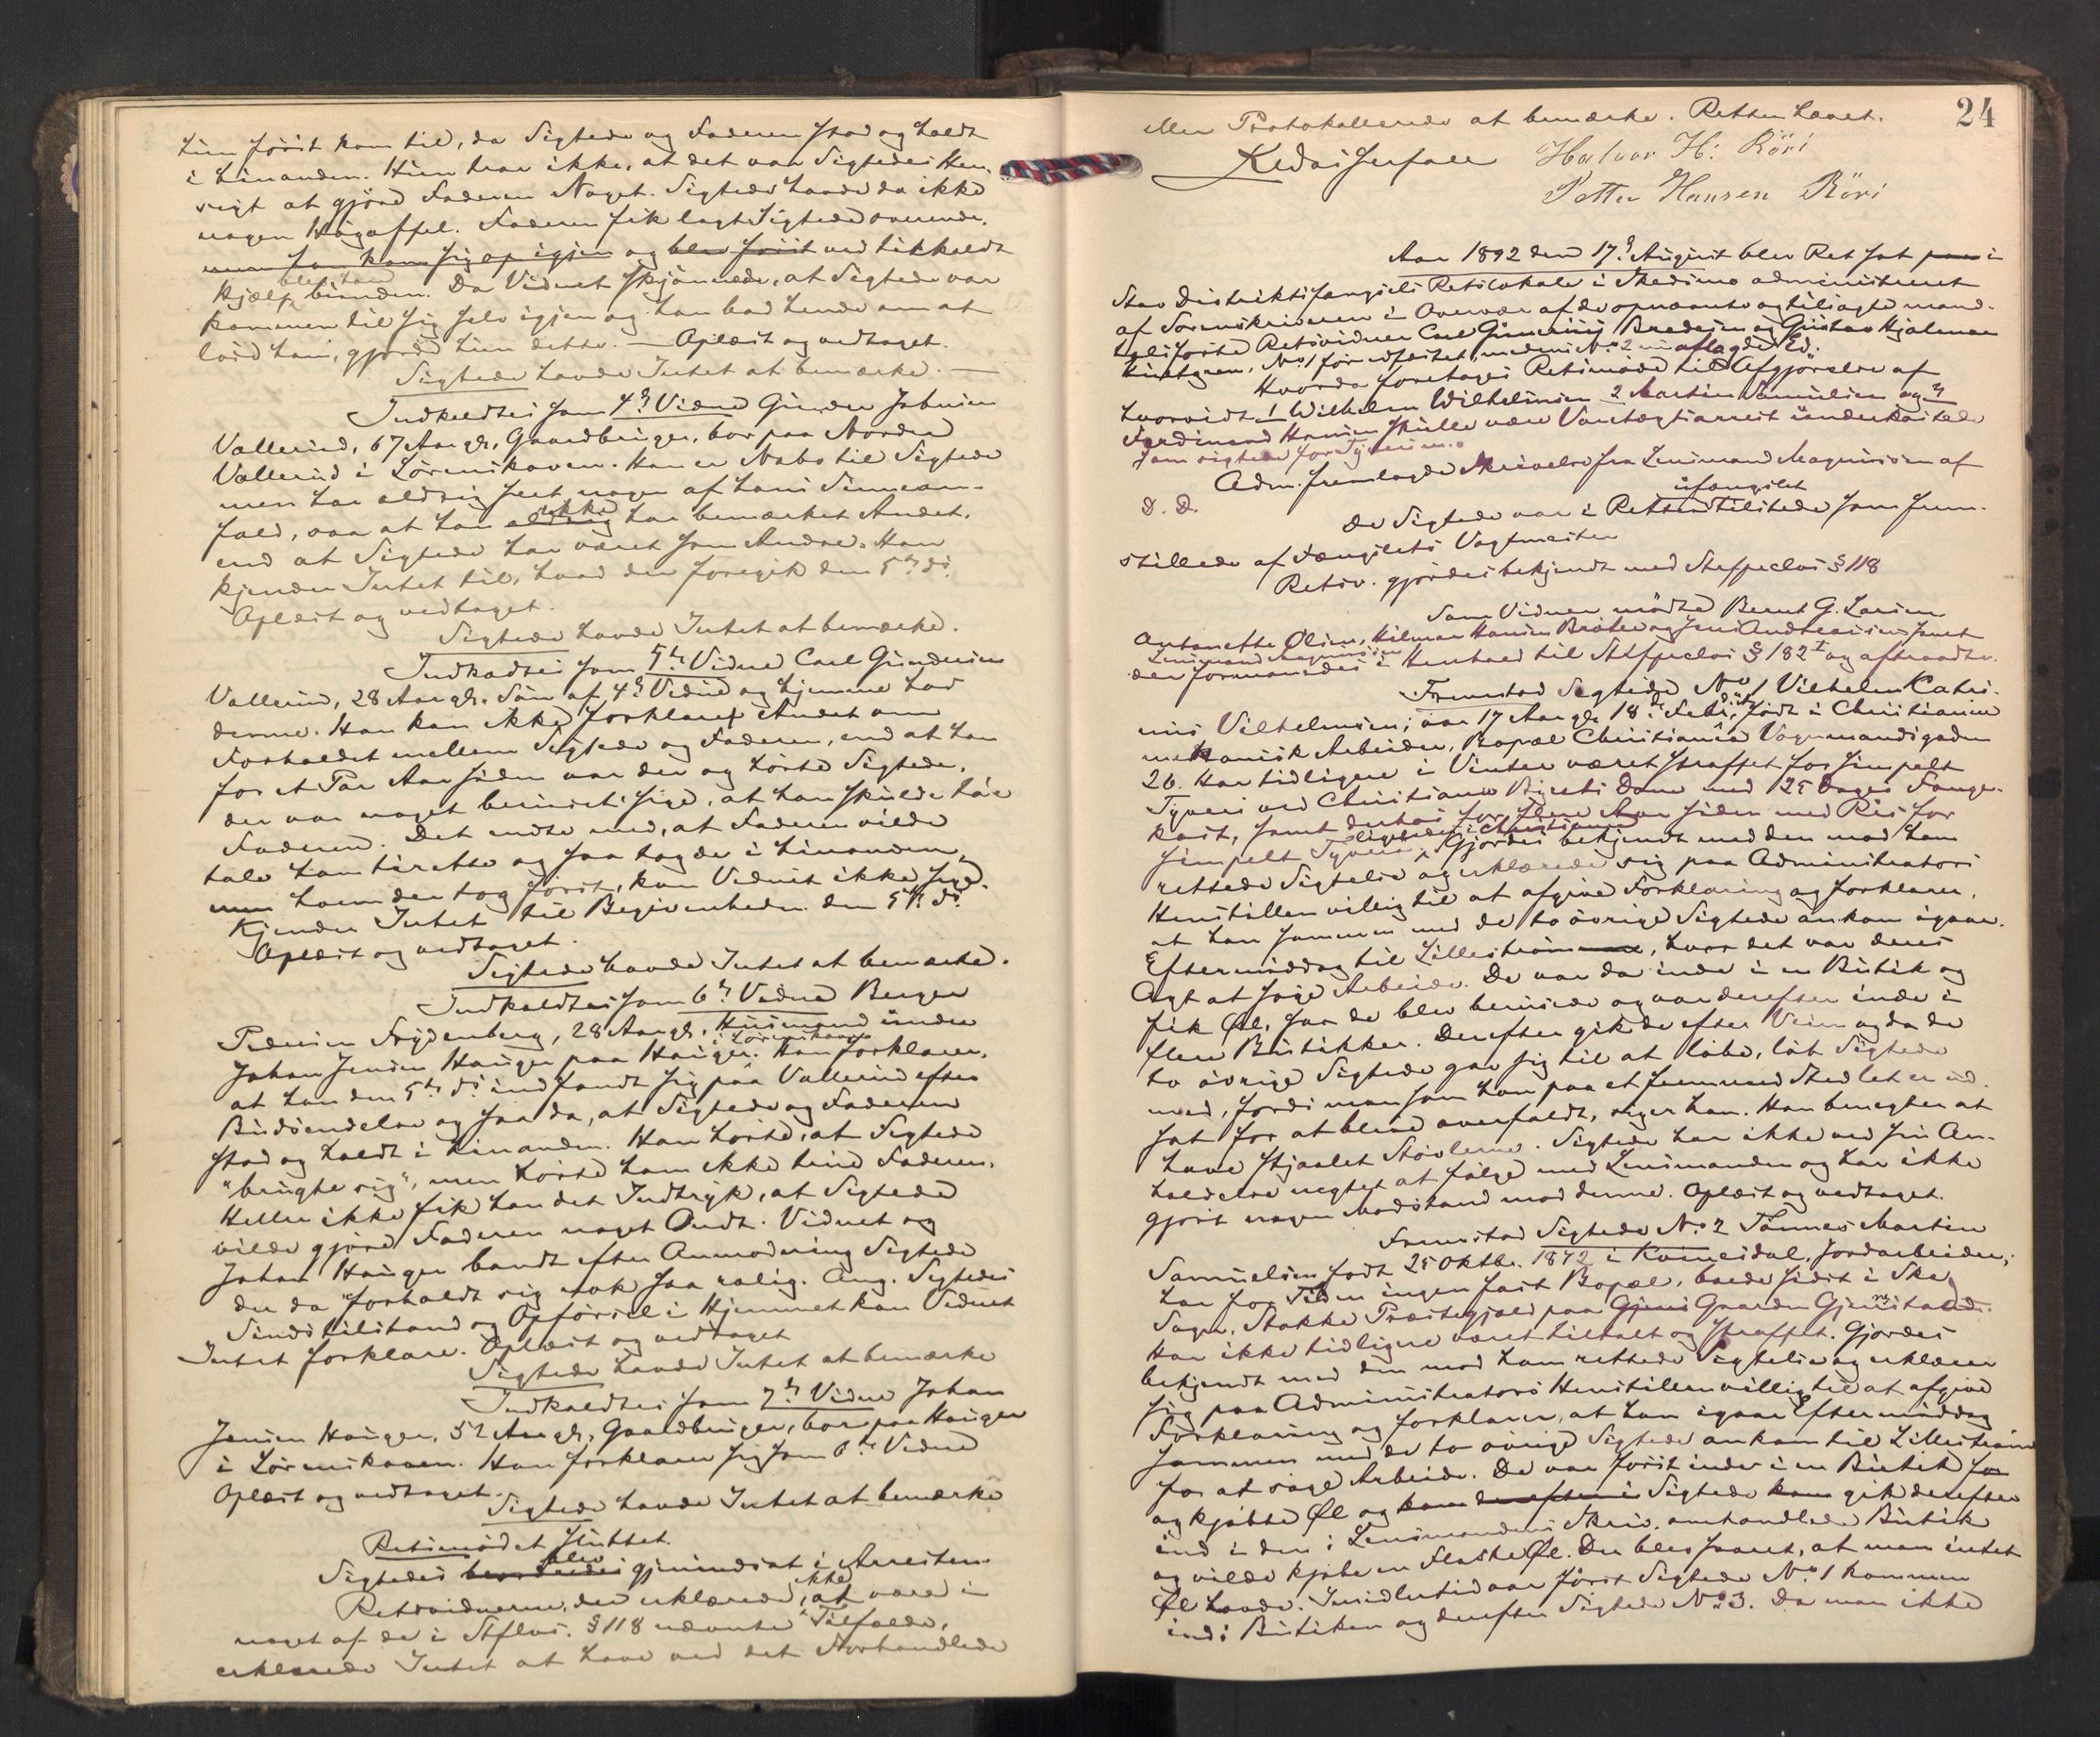 hun först kom til, da Sigtede og Faderen stod og holdt
i hinanden. Hun tror ikke, at det var Sigtedes Hen-
sigt at gjöre Faderen Noget. Sigtede havde da ikke
nogen Höygaffel. Faderen fik lagt Sigtede overende,
men han kom sig op igjen og blev först ved tilkaldt
Hjælp blev han bunden. Da Vidnet skjönnede, at Sigtede var
kommen til sig selv igjen og han bad hende om at
löse ham, gjorde hun dette. — Oplæst og vedtaget.
Sigtede havde Intet at bemærke. —
Indkaldtes som 4de Vidne Gunder Jobsen
Vallerud, 67 Aar gl., Gaardbruger, bor paa Nordre
Vallerud i Lörenskoven. Han er Nabo til Sigtede
men har aldrig seet noget af hans Sinnean-
fald, saa at han aldrig ikke har bemærket Andet,
end at Sigtede har været som Andre. Han
kjender Intet til, hvad der foregik den 5te ds.
Oplæst og vedtaget.
Sigtede havde Intet at bemærke.
Indkaldtes som 5te Vidne Carl Gundersen
Vallerud, 28 Aar gl. Sön af 4de Vidne og hjemme hos
denne. Han kan ikke forklare Andet om
Forholdet mellem Sigtede og Faderen, end at han
for et Par Aar siden var der og hörte Sigtede,
der var noget beruset, sige, at han skulde slaa
Faderen. Det endte med, at Faderen vilde
tale ham tilrette og saa tog de i hinanden,
men hvem der tog först, kan Vidnet ikke sige.
Kjender Intet til Begivenheden den 5te ds.
Oplæst og vedtaget.
Sigtede havde Intet at bemærke.
Indkaldtes som 6te Vidne Berger
Pedersen Frydenberg, 28 Aar gl., Husmand under
Johan Jensen Hauger paa Hauger i Lörenskoven. Han forklarer,
at han den 5te ds. indfandt sig paa Vallerud efter
Budsendelse og saa da, at Sigtede og Faderen
stod og holdt i hinanden. Han hörte, at Sigtede
"brugte sig", men hörte ham ikke true Faderen.
Heller ikke fik han det Indtryk, at Sigtede
vilde gjöre Faderen noget Ondt. Vidnet og
Johan Hauger bandt efter Anmodning Sigtede
der da forholdt sig nok saa rolig. Ang. Sigtedes
Sindstilstand og Opförsel i Hjemmet kan Vidnet
Intet forklare. Oplæst og vedtaget
Sigtede havde Intet at bemærke
Indkaldtes som 7de Vidne Johan
Jensen Hauger, 52 Aar gl., Gaardbruger, bor paa Hauger
i Lörenskoven. Han forklarer sig som 6te Vidne
Oplæst og vedtaget.
Sigtede havde Intet at bemærke
Retsmödet sluttet.
Sigtedes blev gjenindsat i Arresten.
Retsvidnerne, der erklærede, ikke at være i
noget af de i Stflov. § 118 nævnte Tilfælde,
erklærede Intet at have ved det Forhandlede
24
eller Protokollerede at bemærke. Retten hævet.
Halvor H: Röri
Petter Hansen Röri
Aar 1892 den 17de August blev Ret sat paa i
Stav Distriktsfængsels Retslokale i Skedsmo administreret
af Sorenskriveren i Overvær af de opnævnte og tilsagte mand-
talsförte Retsvidner Carl Bredesen og Gustav Hjalmar
No 1 för edfæstet, medens No 2 nu aflagde Ed.
Hvorda foretoges Retsmöde til Afgjörelse af
hvorvidt 1 Wilhelm Wilhelmsen 2 Martin Samuelsen og 3
Ferdinand Hansen skulle være Varetægtsarrest underkastede
som sigtede for Tyveri.
Adm. fremlagde Skrivelse fra Lensmand Magnussen af
D. D.
De Sigtede var i Retten ufængslet tilstede som frem-
stillede af Fængslets Vagtmester
Retsv. gjordes bekjendt med Strfpeclov § 118
Som Vidner mödte Bernt G. Larsen
Antonette Olsen, Hilmar Hansen Bråten og Jens Andreassen samt
Lensmand Magnussen
der formanedes i Henhold til Stfpeclov § 182 I og aftraadte.
Fremstod Sigtede No 1 Vilhelm Cathi-
nus Vilhelmsen; var 17 Aar gl. 18de Febr. födt i Christiania
mekanisk Arbeider, Bopæl Christiania Vognmandsgaden
26. Har tidligere i Vinter været straffet for simpelt
Tyveri ved Christiania Byrets Dom med 25 Dages Fange-
kost, samt derhos for flere Aar siden med Ris for
simpelt Tyveri ligeledes i Christiania. Gjordes bekjendt med den mod ham
rettede Sigtelse og erklærede sig paa Administrators
Henstillen villig til at afgive Forklaring og forklarer,
at han sammen med de to övrige Sigtede ankom igaar.
Eftermiddag til Lilleström, hvor det var deres
Agt at söge Arbeide. De var da inde i en Butik og
fik Öl, saa de blev berusede og var derefter inde i
flere Butikker. Derefter gik de efter Veien og da de
to övrige Sigtede gav sig til at löbe, löb Sigtede
med, fordi man som han paa et fremmed Sted let er ud-
sat for at blive overfaldt, siger han. Han benegter at
have stjaalet Stövlerne. Sigtede har ikke ved sin An-
holdelse negtet at fölge med Lensmanden og har ikke
gjort nogen Modstand mod denne. Oplæst og vedtaget.
Fremstod Sigtede No 2 Tönnes Martin
Samuelsen födt 25 Oktbr. 1872 i Kvinesdal, Jordarbeider,
har for Tiden ingen fast Bopæl, boede sidst i Ske
Sogn, Stokke Præstegjæld paa Gjens Gaarden Gjenstad.
Har ikke tidligere været tiltalt og straffet. Gjordes
bekjendt med den mod ham rettede Sigtelse og erklærer
sig paa Administrators Henstillen villig til at afgive
Forklaring og forklarer, at han igaar Eftermiddag
sammen med de to övrige Sigtede ankom til Lilleström
for at söge Arbeide. De var först inde i en Butik for
og kjöbte Öl og kom derefter i Sigtede kom gik derefter
ind i den i Lensmandens Skriv. omhandlede Butik
og vilde kjöbe en Flaske Öl. Der blev svaret, at man intet
Öl havde. Imidlertid var först Sigtede No 1 kommen
ind i Butiken og derefter Sigtede No 3. Da man ikke